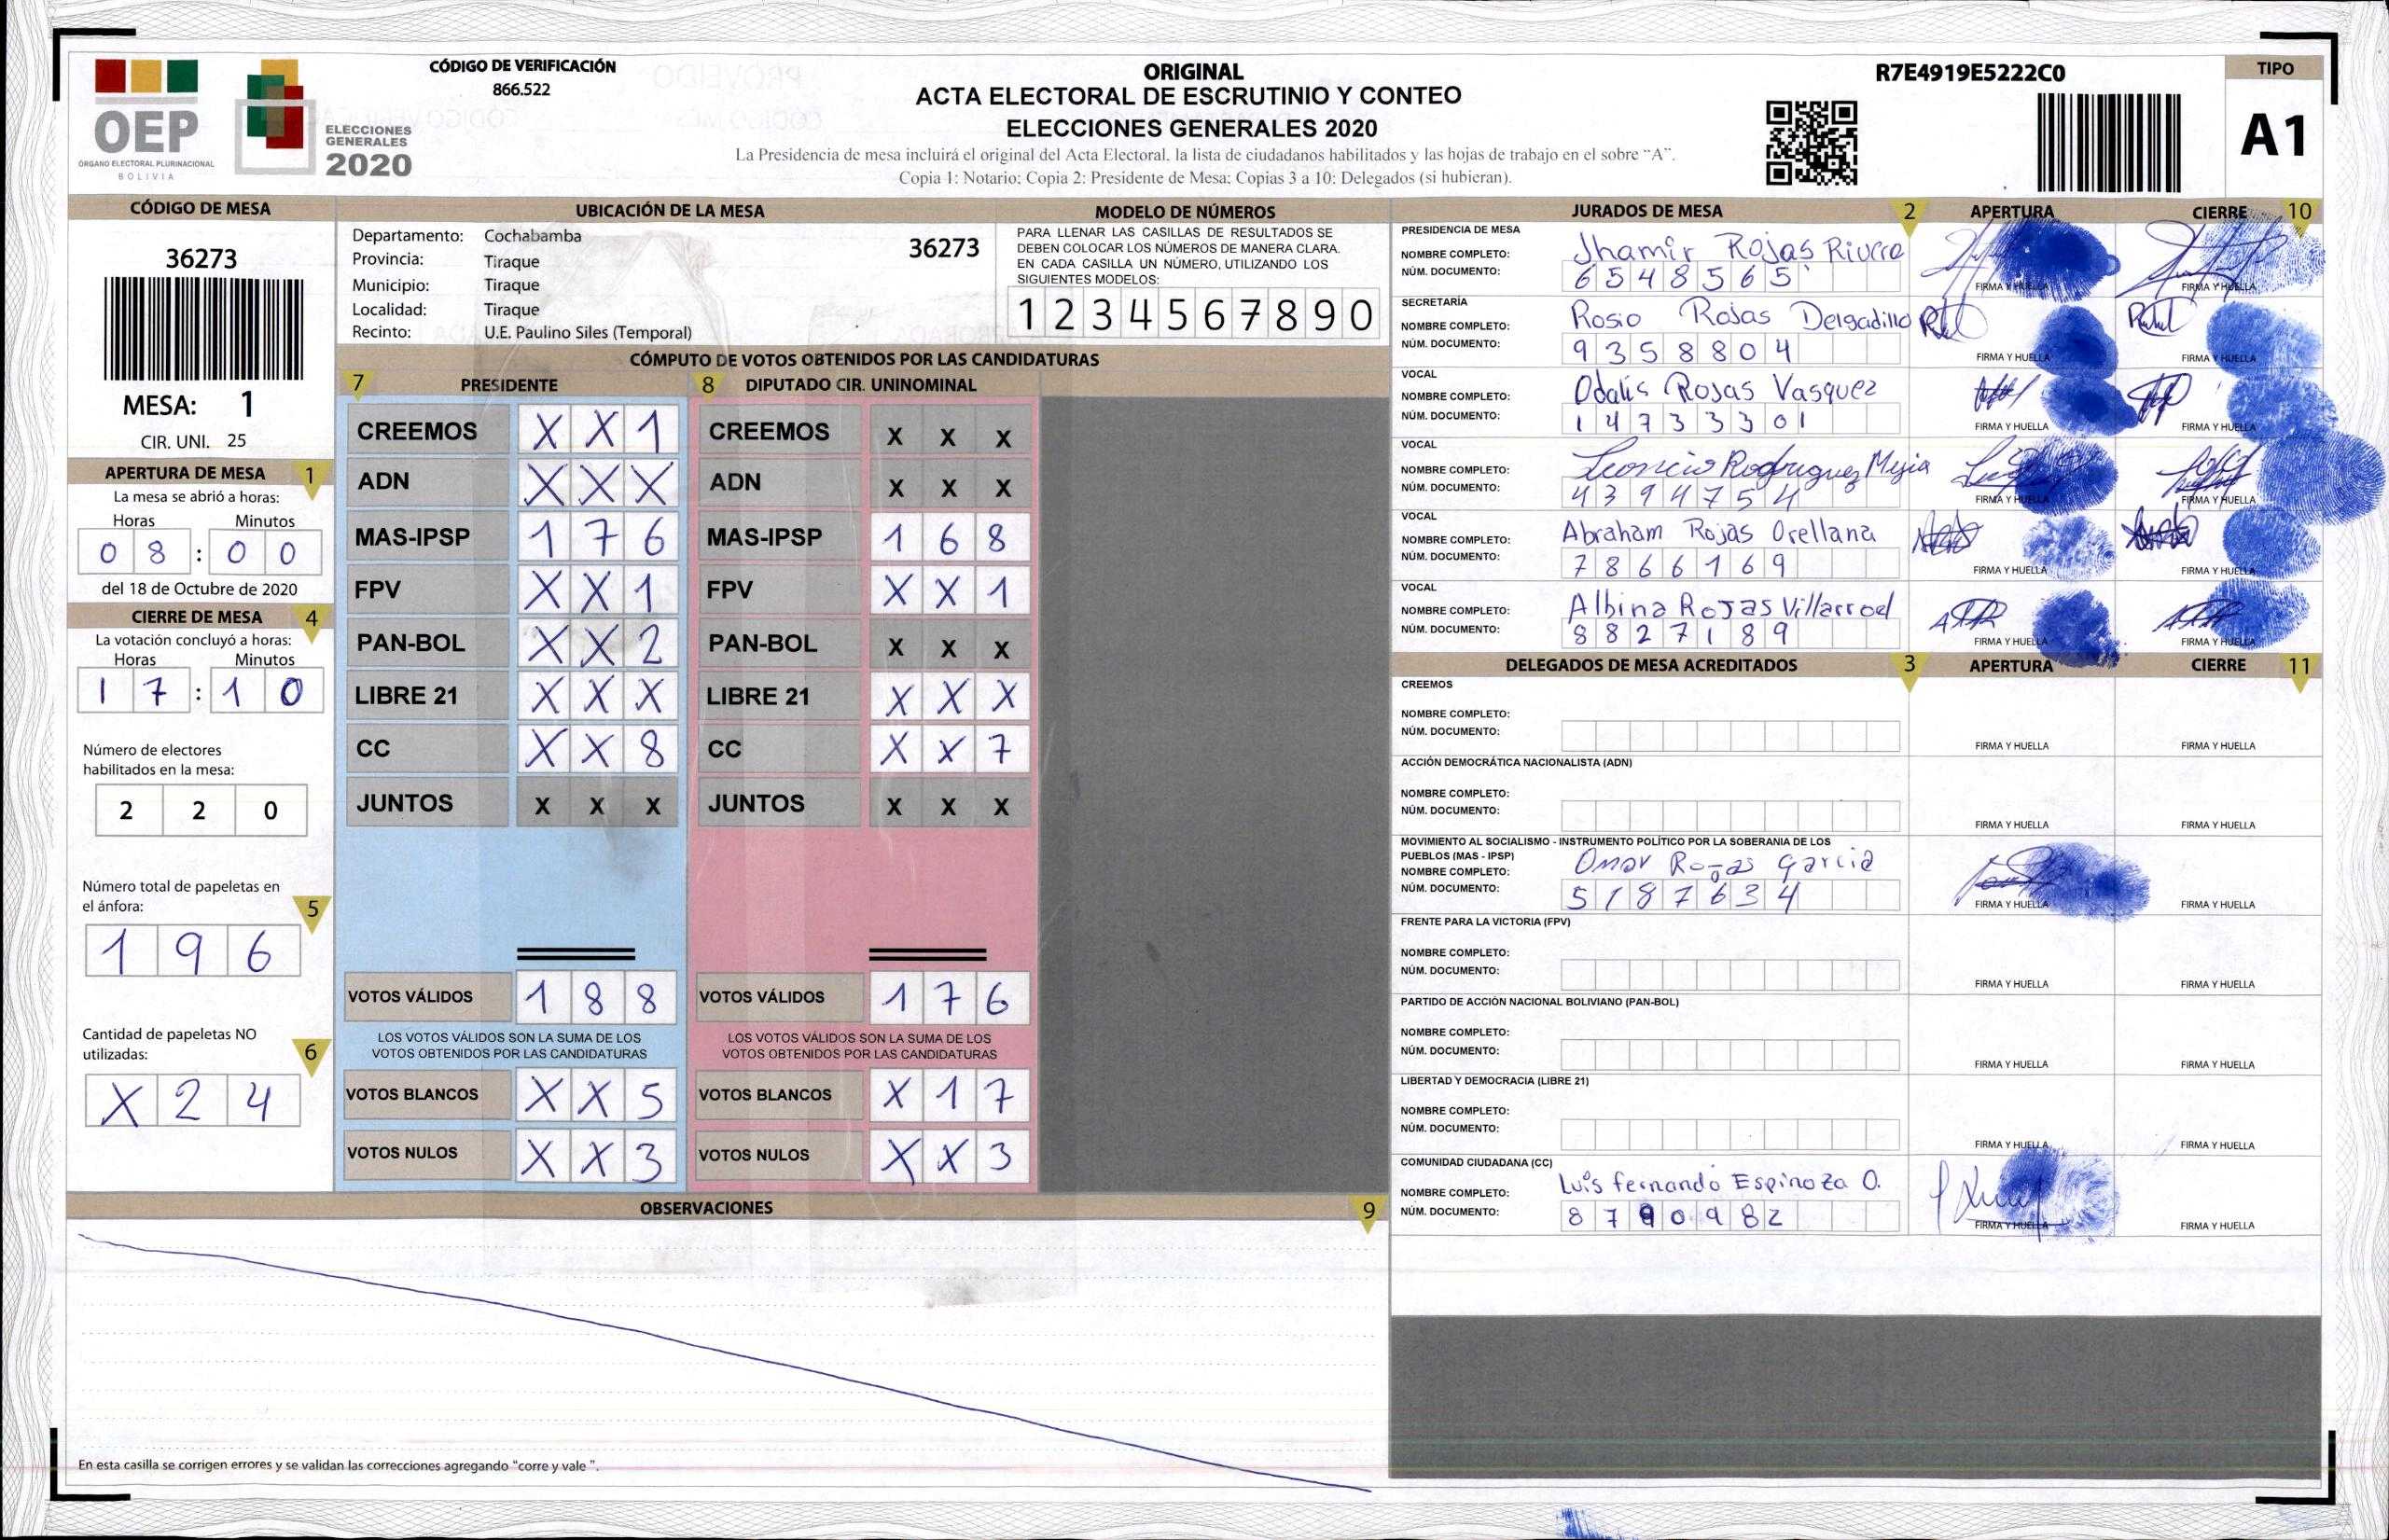 OEP
ÓRGANO ELECTORAL PLURINACIONAL
BOLIVIA
ELECCIONES
GENERALES
2020
CÓDIGO DE VERIFICACIÓN
866.522
ORIGINAL
ACTA ELECTORAL DE ESCRUTINIO Y CONTEO
ELECCIONES GENERALES 2020
La Presidencia de mesa incluirá el original del Acta Electoral, la lista de ciudadanos habilitados y las hojas de trabajo en el sobre "A".
Copia 1: Notario; Copia 2: Presidente de Mesa; Copias 3 a 10: Delegados (si hubieran).
R7E4919E5222C0
TIPO
A1
CÓDIGO DE MESA
36273
MESA: 1
CIR. UNI. 25
APERTURA DE MESA 1
La mesa se abrió a horas:
Horas Minutos
0 8 : 0 0
del 18 de Octubre de 2020
CIERRE DE MESA 4
La votación concluyó a horas:
Horas Minutos
1 7 : 1 0
Número de electores
habilitados en la mesa:
2 2 0
Número total de papeletas en
el ánfora: 5
1 9 6
Cantidad de papeletas NO
utilizadas: 6
X 2 4
UBICACIÓN DE LA MESA
Departamento: Cochabamba 36273
Provincia: Tiraque
Municipio: Tiraque
Localidad: Tiraque
Recinto: U.E. Paulino Siles (Temporal)
MODELO DE NÚMEROS
PARA LLENAR LAS CASILLAS DE RESULTADOS SE
DEBEN COLOCAR LOS NÚMEROS DE MANERA CLARA.
EN CADA CASILLA UN NÚMERO, UTILIZANDO LOS
SIGUIENTES MODELOS:
1 2 3 4 5 6 7 8 9 0
CÓMPUTO DE VOTOS OBTENIDOS POR LAS CANDIDATURAS
7 PRESIDENTE 8 DIPUTADO CIR. UNINOMINAL
CREEMOS X X 1 CREEMOS X X X
ADN X X X ADN X X X
MAS-IPSP 1 7 6 MAS-IPSP 1 6 8
FPV X X 1 FPV X X 1
PAN-BOL X X 2 PAN-BOL X X X
LIBRE 21 X X X LIBRE 21 X X X
CC X X 8 CC X X 7
JUNTOS X X X JUNTOS X X X
VOTOS VÁLIDOS 1 8 8 VOTOS VÁLIDOS 1 7 6
LOS VOTOS VÁLIDOS SON LA SUMA DE LOS LOS VOTOS VÁLIDOS SON LA SUMA DE LOS
VOTOS OBTENIDOS POR LAS CANDIDATURAS VOTOS OBTENIDOS POR LAS CANDIDATURAS
VOTOS BLANCOS X X 5 VOTOS BLANCOS X 1 7
VOTOS NULOS X X 3 VOTOS NULOS X X 3
OBSERVACIONES 9
En esta casilla se corrigen errores y se validan las correcciones agregando "corre y vale ".
JURADOS DE MESA 2 APERTURA CIERRE 10
PRESIDENCIA DE MESA
NOMBRE COMPLETO: Jhamir Rojas
NÚM. DOCUMENTO: 6 5 4 8 5 6 5
FIRMA Y HUELLA FIRMA Y HUELLA
SECRETARÍA
NOMBRE COMPLETO: Rosio Rojas Delgadillo
NÚM. DOCUMENTO: 9 3 5 8 8 0 4
FIRMA Y HUELLA FIRMA Y HUELLA
VOCAL
NOMBRE COMPLETO: Odalis Rojas Vasquez
NÚM. DOCUMENTO: 1 4 7 3 3 3 0 1
FIRMA Y HUELLA FIRMA Y HUELLA
VOCAL
NOMBRE COMPLETO: Leoncio Rodriguez Mejia
NÚM. DOCUMENTO: 4 3 9 4 7 5 4
FIRMA Y HUELLA FIRMA Y HUELLA
VOCAL
NOMBRE COMPLETO: Abraham Rojas Orellana
NÚM. DOCUMENTO: 7 8 6 6 1 6 9
FIRMA Y HUELLA FIRMA Y HUELLA
VOCAL
NOMBRE COMPLETO: Albina Rojas Villarroel
NÚM. DOCUMENTO: 8 8 2 7 1 8 9
FIRMA Y HUELLA FIRMA Y HUELLA
DELEGADOS DE MESA ACREDITADOS 3 APERTURA CIERRE 11
CREEMOS
NOMBRE COMPLETO:
NÚM. DOCUMENTO:
FIRMA Y HUELLA FIRMA Y HUELLA
ACCIÓN DEMOCRÁTICA NACIONALISTA (ADN)
NOMBRE COMPLETO:
NÚM. DOCUMENTO:
FIRMA Y HUELLA FIRMA Y HUELLA
MOVIMIENTO AL SOCIALISMO - INSTRUMENTO POLÍTICO POR LA SOBERANIA DE LOS
PUEBLOS (MAS - IPSP)
NOMBRE COMPLETO: Omar Rojas Garcia
NÚM. DOCUMENTO: 5 1 8 7 6 3 4
FIRMA Y HUELLA FIRMA Y HUELLA
FRENTE PARA LA VICTORIA (FPV)
NOMBRE COMPLETO:
NÚM. DOCUMENTO:
FIRMA Y HUELLA FIRMA Y HUELLA
PARTIDO DE ACCIÓN NACIONAL BOLIVIANO (PAN-BOL)
NOMBRE COMPLETO:
NÚM. DOCUMENTO:
FIRMA Y HUELLA FIRMA Y HUELLA
LIBERTAD Y DEMOCRACIA (LIBRE 21)
NOMBRE COMPLETO:
NÚM. DOCUMENTO:
FIRMA Y HUELLA FIRMA Y HUELLA
COMUNIDAD CIUDADANA (CC)
NOMBRE COMPLETO: Luis fernando Espinoza O.
NÚM. DOCUMENTO: 8 7 9 0 9 8 2
FIRMA Y HUELLA FIRMA Y HUELLA